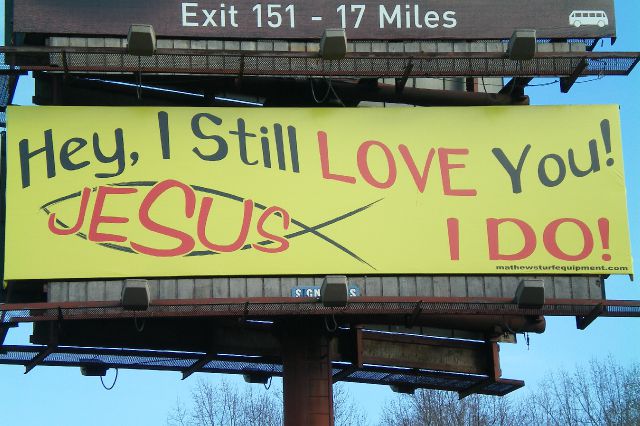 Exit 151 - 17 Miles
Hey, I Still LOVE You!
JESUS
I DO!
mathewsturfequipment.com